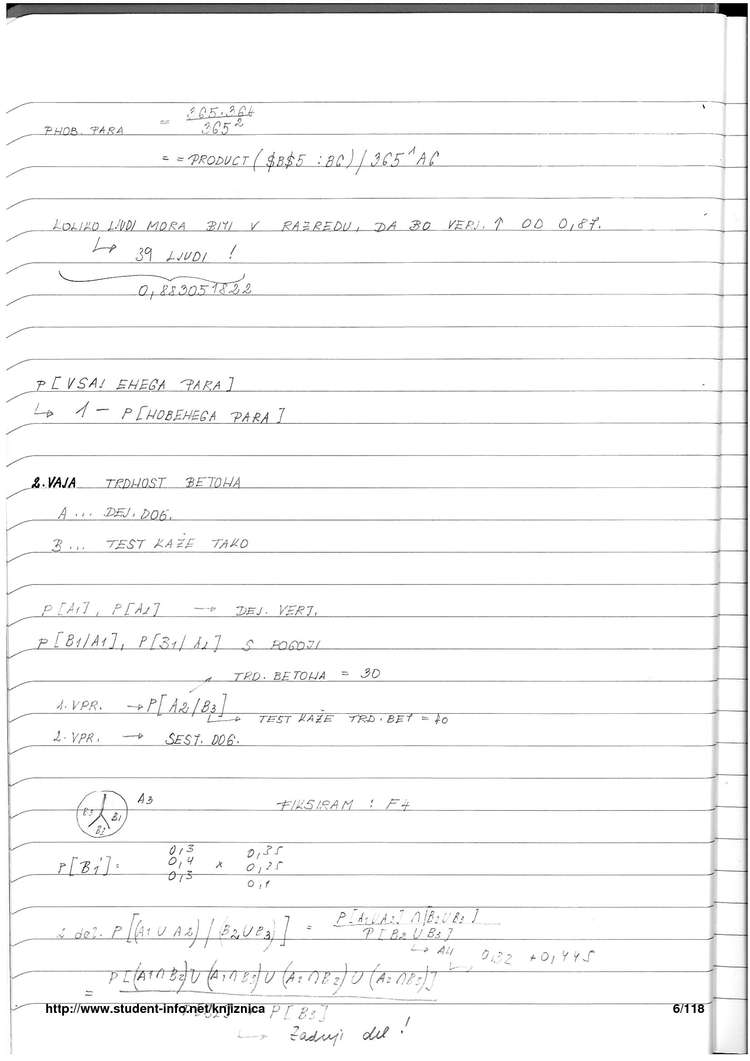 = 365.364
365²
PHOB. PARA
= = PRODUCT ( $B$5 : B6) / 365^A6
KOLIKO LJUDI MORA BITI V RAZREDU, DA BO VERJ. ↑ OD 0,87.
↳ 39 LJUDI !
0,883051822
P [ VSAJ ENEGA PARA ]
↳ 1 - P [ NOBENEGA PARA ]
2. VAJA TRDNOST BETONA
A ... DEJ. DOG.
B ... TEST KAŽE TAKO
P [A1] , P [A2] → DEJ. VERJ.
P [B1/A1], P [B1/A2] S POGOJI
TRD. BETONA = 30
1. VPR. → P[ A2/B3 ]
↳ TEST KAŽE TRD. BET = 40
2. VPR. → SEST. DOG.
A3
B3 B1
B2
FIKSIRAM : F4
P[B1] =
0,3 0,35
0,4 x 0,25
0,3 0,1
2 del. P [(A1 ∪ A2) / (B2 ∪ B3)] = P[A1 ∪ A2] ∩ [B2 ∪ B3]
P [B2 ∪ B3]
0,32 + 0,445
= P [(A1 ∩ B2) ∪ (A1 ∩ B3) ∪ (A2 ∩ B2) ∪ (A2 ∩ B3)]
P [B3]
http://www.student-info.net/knjiznica 6/118
↳ Zadnji del !